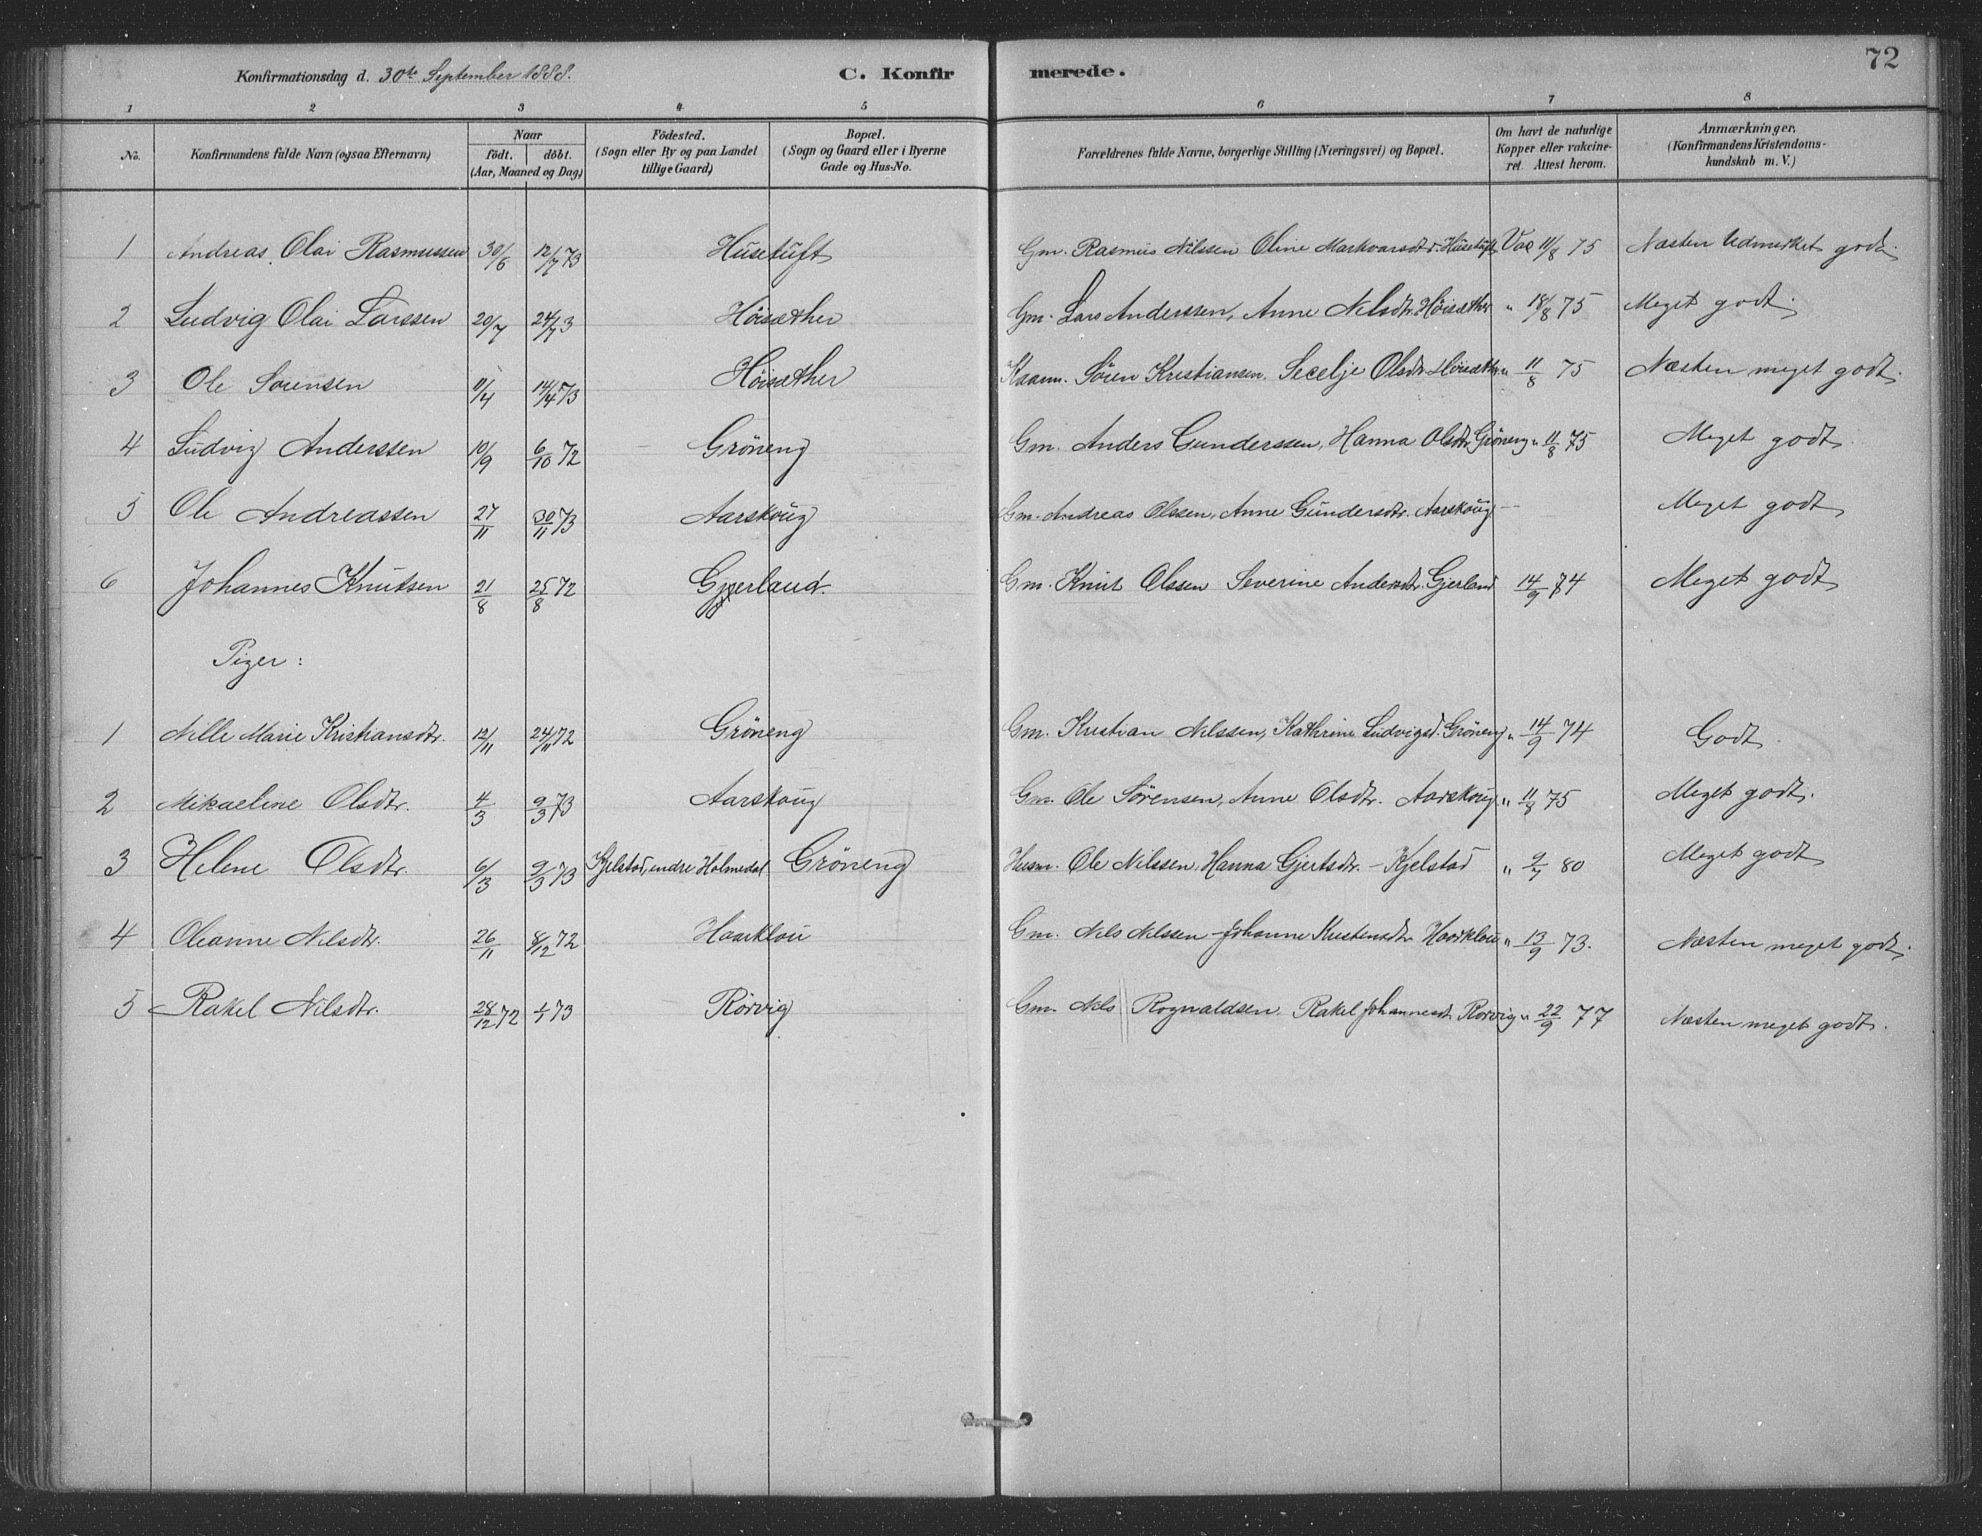 Konfirmationsdag d. 30te September 1888. C. Konfirmerede. 72
1 2 3 4 5 6 7 8
No. Konfirmandens fulde Navn (ogsaa Efternavn) Naar födt. döbt. (Aar, Maaned og Dag) Födested. (Sogn eller By og paa Landet tillige Gaard) Bopæl. (Sogn og Gaard eller i Byerne Gade og Hus-No. Forældrenes fulde Navne, borgerlige Stilling (Næringsvei) og Bopæl. Om havt de naturlige Kopper eller vakcineret. Attest herom. Anmærkninger, (Konfirmandens Kristendomskundskab m. V.)
1 Andreas Olai Rasmussen 30/6 12/7 73 Husetuft Gm. Rasmus Nilssen Oline Markvarsdtr. Husetuft Vac 11/8 75 Næsten Udmerket godt.
2 Ludvig Olai Larssen 20/7 24/7 73 Höisæther Gm. Lars Anderssen, Anne Nilsdtr. Höisæther " 18/8 75 Meget godt.
3 Ole Sörensen 11/4 14/4 73 Höisæther Kaarm. Sören Kristiansen. Secelje Olsdtr Höisæther " 11/8 75 Næsten meget godt.
4 Ludvig Anderssen 10/9 6/10 72 Gröneng Gm. Anders Gunderssen, Hanna Olsdtr Gröneng " 11/8 75 Meget godt.
5 Ole Andreassen 27/11 30/11 73 Aarskoug Gm. Andreas Olssen, Anne Gundersdtr. Aarskoug — Meget godt
6 Johannes Knutsen 21/8 25/8 72 Gjerland. Gm. Knut Olssen Severine Andersdtr. Gjerland 14/9 74 Meget godt
Piger:
1 Nille Marie Kristiansdtr. 12/11 24/11 72 Gröneng Gm. Kristian Nilssen, Kathrine Ludvigsd. Gröneng " 14/9 74 Godt.
2 Mikaeline Olsdtr. 4/3 9/3 73 Aarskoug Gm. Ole Sörensen, Anne Olsdtr. Aarskoug " 11/8 75 Meget godt.
3 Helene Olsdtr. 6/3 9/3 73 Kjelstad, indre Holmedal Gröneng Husm. Ole Nilssen, Hanna Gjertsdtr. – Kjelstad " 9/7 80 Meget godt
4 Oleanne Nilsdtr. 26/11 8/12 72 Haarklou Gm. Nils Nilssen – Johanne Kristensdtr Haarklou " 13/9 73. Næsten meget godt.
5 Rakel Nilsdtr. 28/12 72 1/1 73 Rörvig Gm. Nils Rognaldsen. Rakel Johannesdt. Rörvig " 22/9 77 Næsten meget godt.